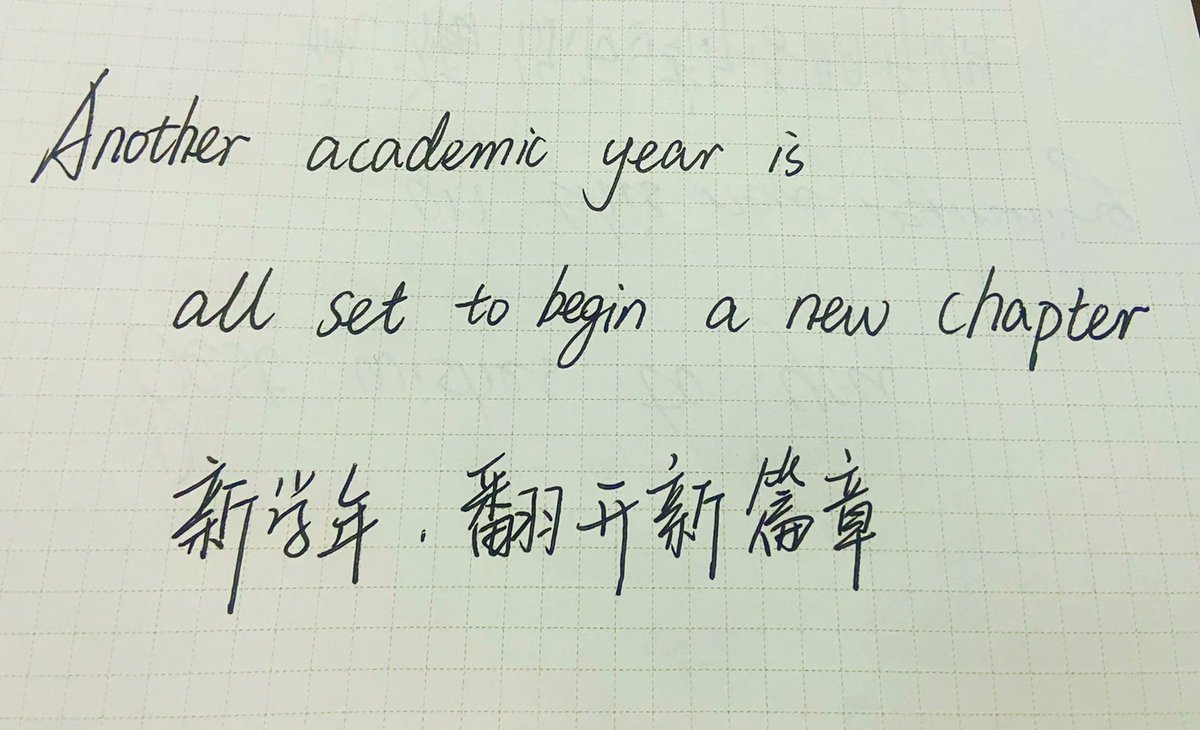 Another academic year is
all set to begin a new chapter
新学年.翻开新篇章